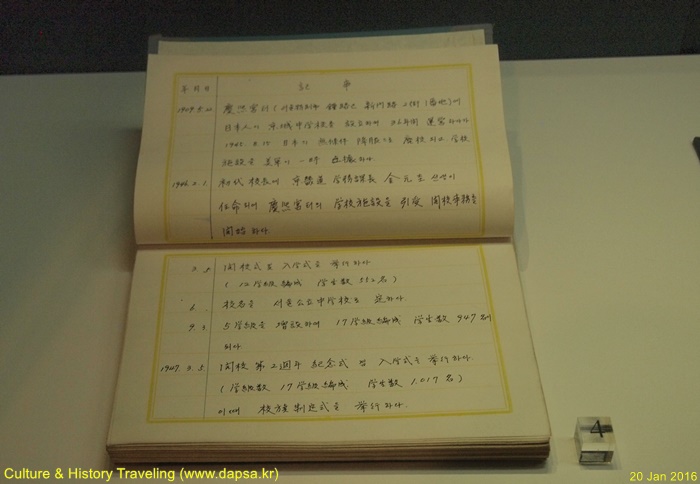 年月日 記 事
慶熙宮터(서울特別市 鐘路區 新門路 2街 1番地)에
日本人이 京城中学校를 設立하여 36年間 運営하다가
1945. 8. 15 日本이 無條件 降服으로 廃校 되고 学校
施設을 美軍이 一時 占據하다.
1946. 2. 1. 初代 校長에 京畿道 学務課長 金元圭 先生이
任命되어 慶熙宮터의 学校施設을 引受 開校事務를
開始 하다.
開校式 및 入学式을 挙行하다
( 12学級編成 学生数 552名 )
6. 校名을 서울公立中学校로 定하다.
5学級을 増設하여 17学級編成 学生数 947名이
되다.
1947. 3. 3. 開校 第2週年 紀念式 및 入学式을 挙行하다.
( 学級数 17学級編成 学生数 1.017名 )
이때 校旗制定式을 挙行하다.
4
Culture & History Traveling (www.dapsa.kr)
20 Jan 2016